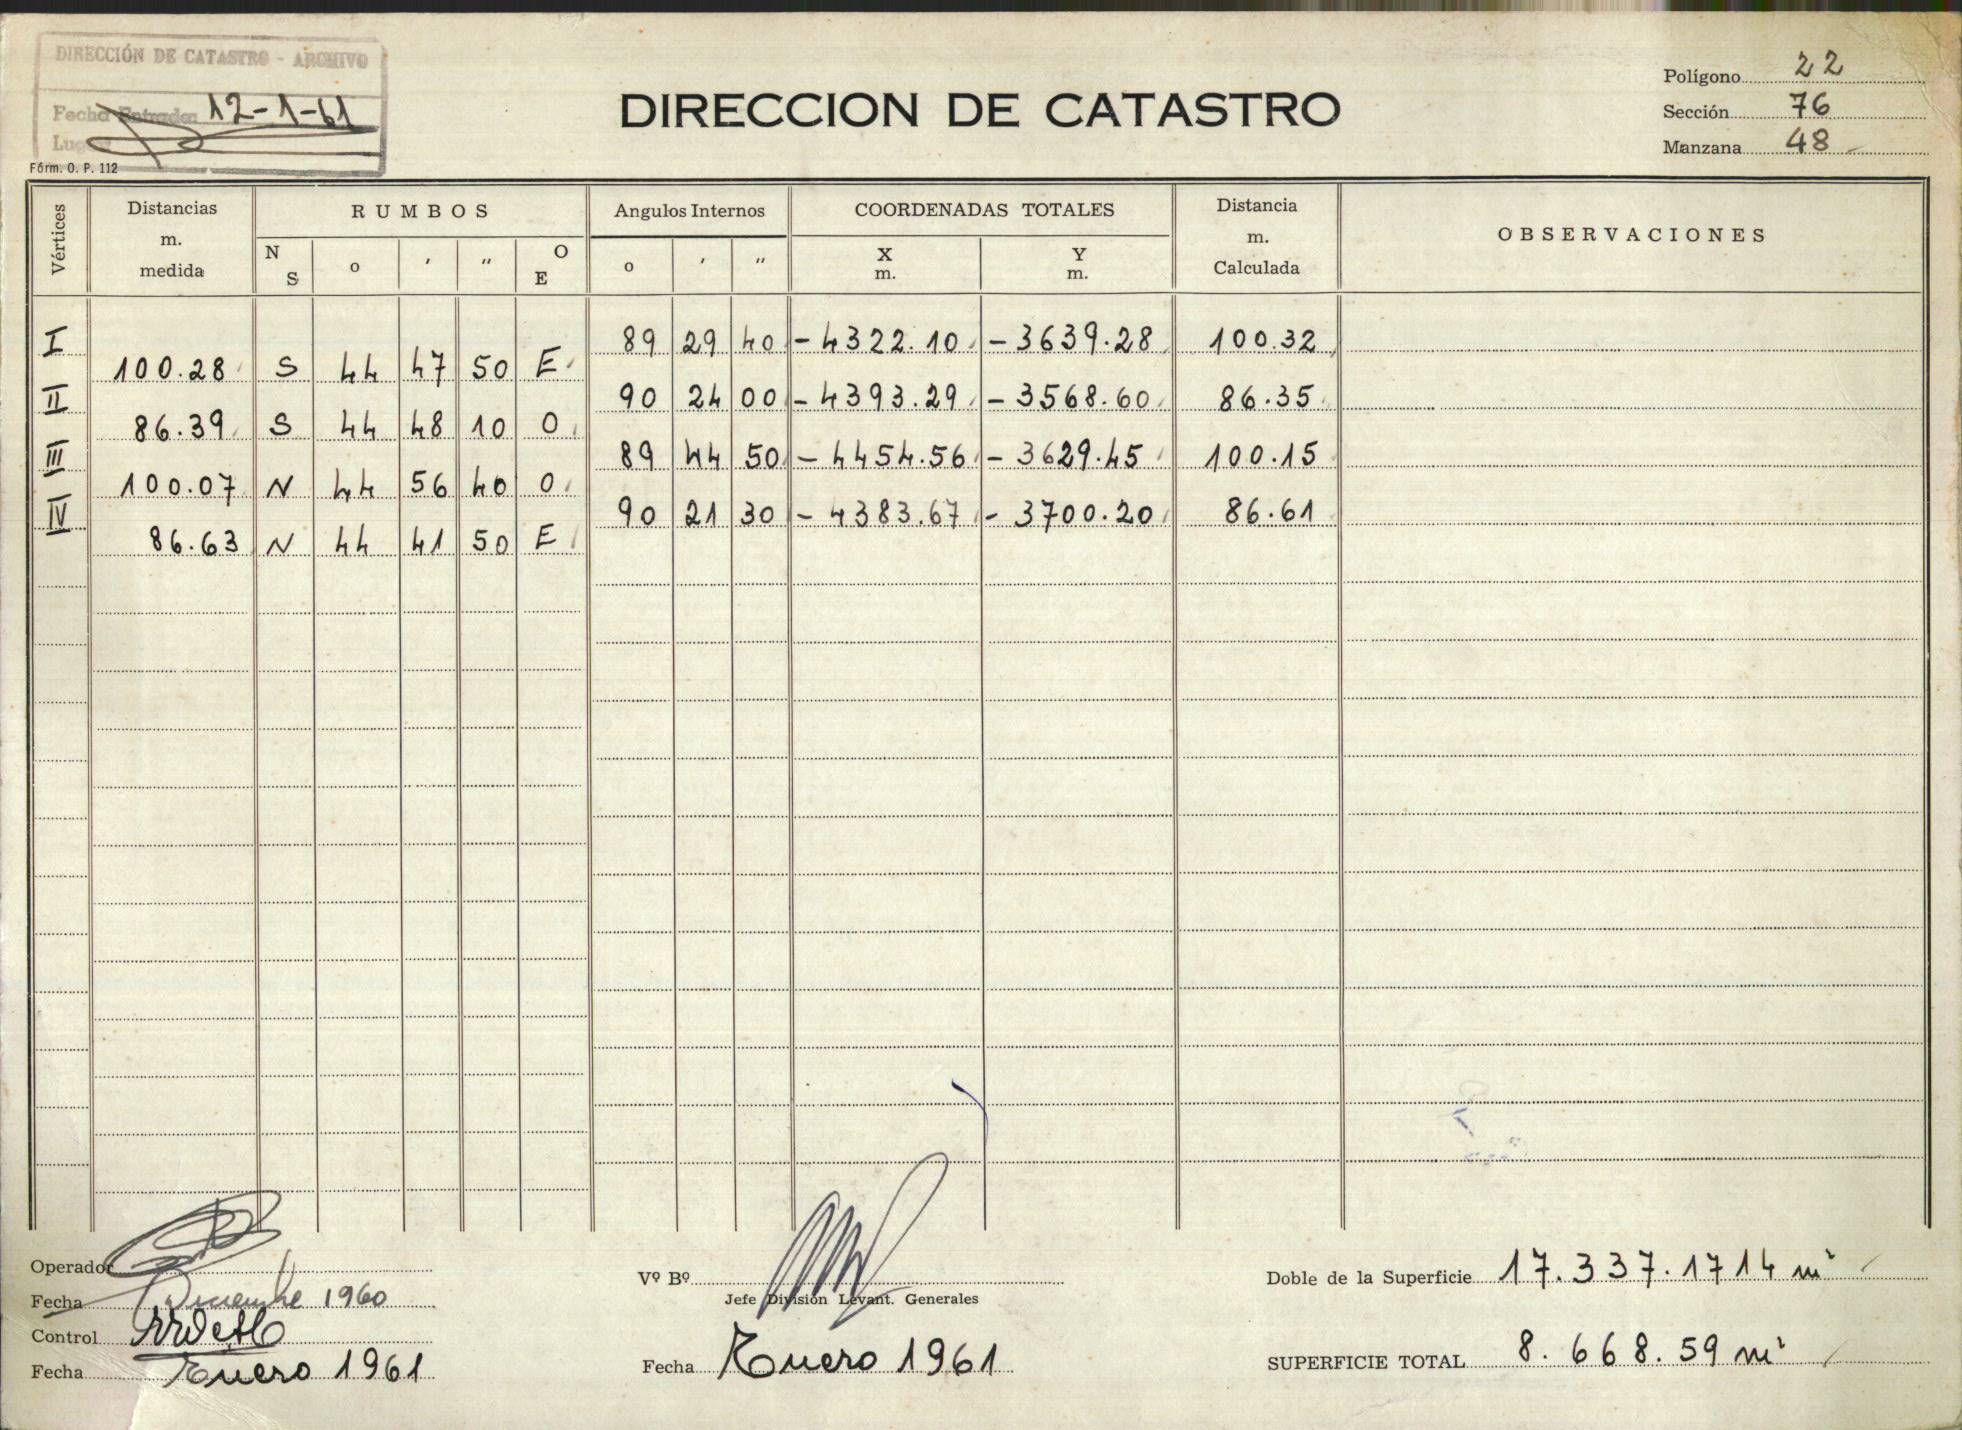 DIRECCIÓN DE CATASTRO - ARCHIVO
Fecha Entrada: 12-1-61
Fórm. O. P. 112
DIRECCION DE CATASTRO
Polígono 22
Sección 76
Manzana 48
Vértices
Distancias m. medida
RUMBOS
Angulos Internos
COORDENADAS TOTALES
Distancia m. Calculada
OBSERVACIONES
N S o ' " O E o ' " X m. Y m.
I 89 29 40 -4322.10 -3639.28 100.32
100.28 S 44 47 50 E
II 90 24 00 -4393.29 -3568.60 86.35
86.39 S 44 48 10 O
III 89 44 50 -4454.56 -3629.45 100.15
100.07 N 44 56 40 O
IV 90 21 30 -4383.67 -3700.20 86.61
86.63 N 44 41 50 E
Operador
Fecha Diciembre 1960
Control
Fecha Enero 1961
Vº Bº
Jefe División Levant. Generales
Fecha Enero 1961
Doble de la Superficie 17.337.1714 m²
SUPERFICIE TOTAL 8.668.59 m²